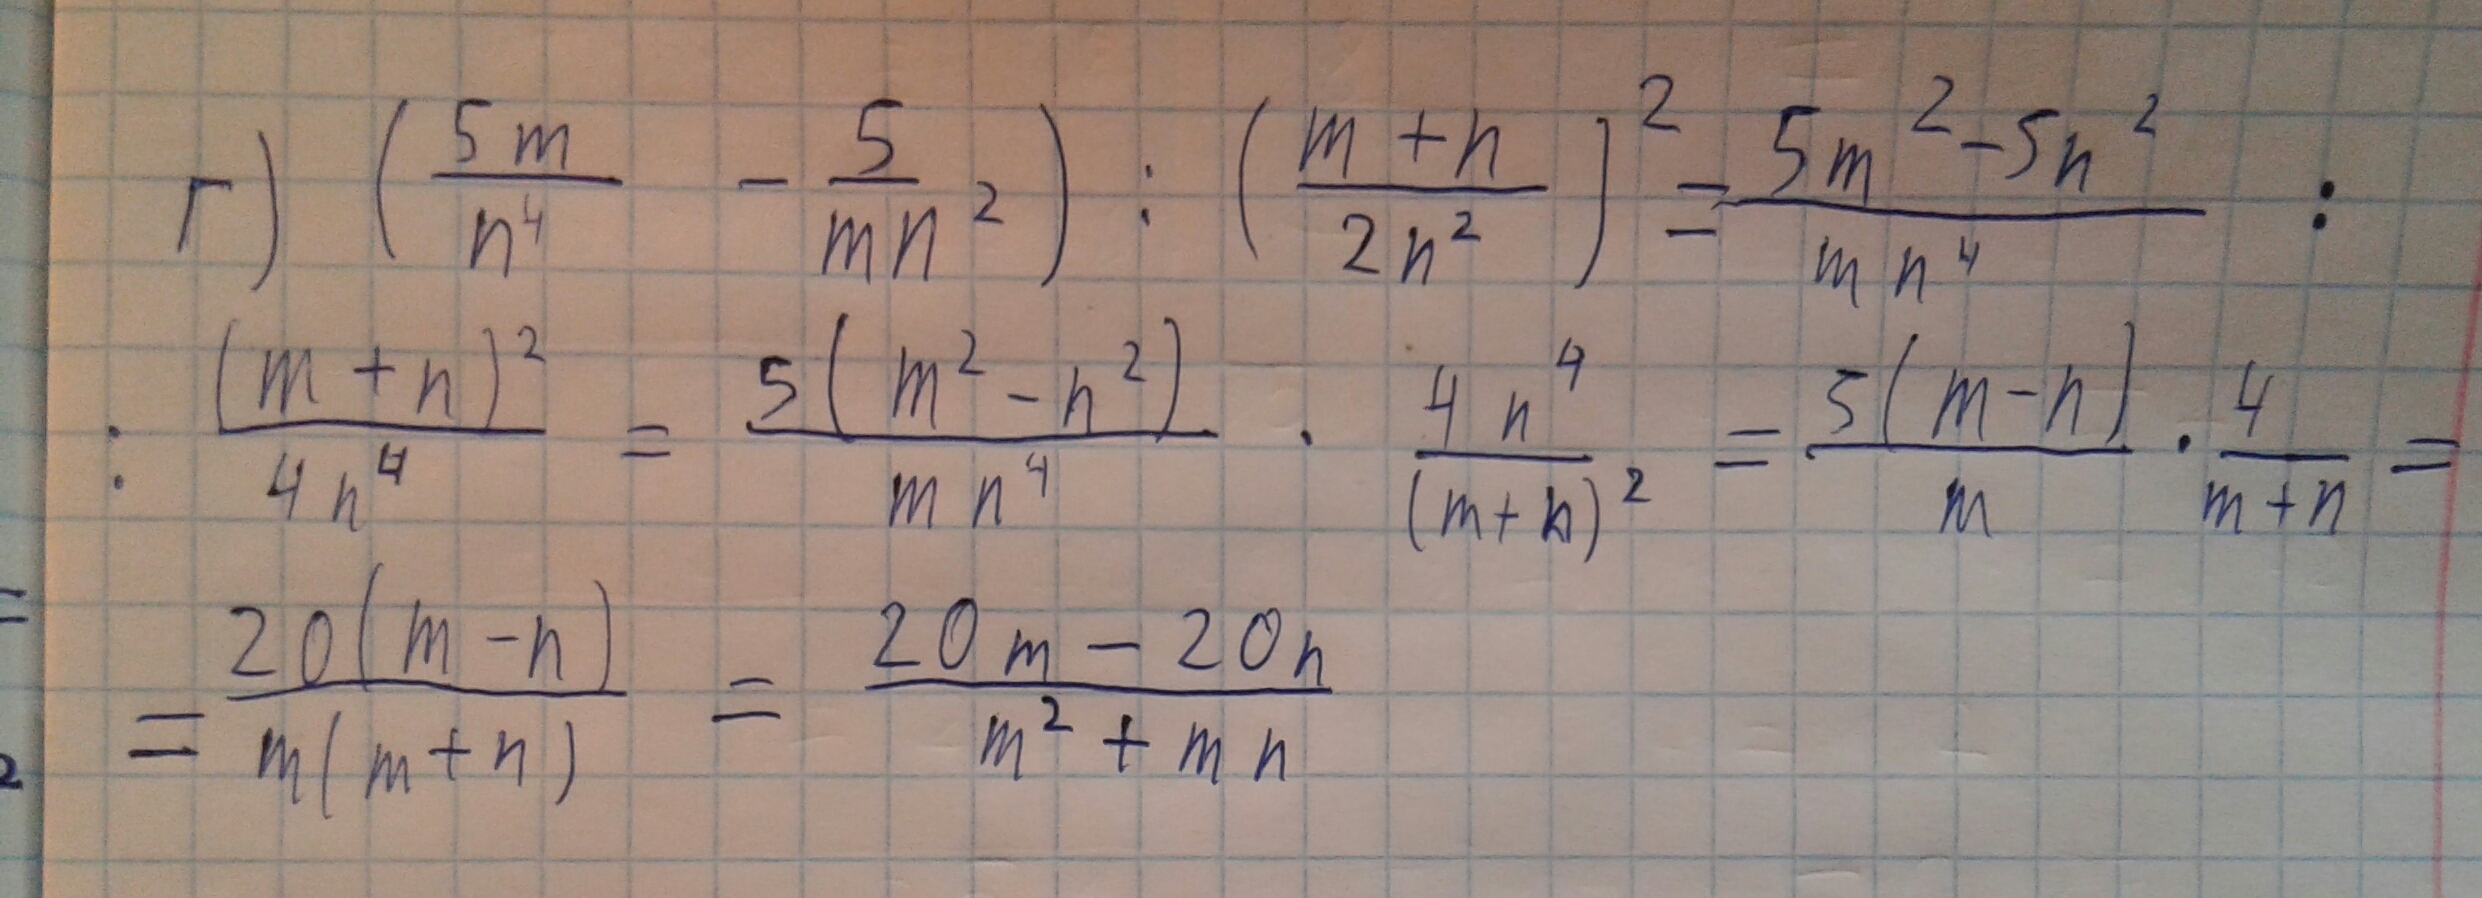 г) (5m/n⁴ - 5/mn²) : (m+n/2n²)² = 5m²-5n²/mn⁴ :
: (m+n)²/4n⁴ = 5(m²-n²)/mn⁴ · 4n⁴/(m+n)² = 5(m-n)/m · 4/m+n =
= 20(m-n)/m(m+n) = 20m-20n/m²+mn
=
2